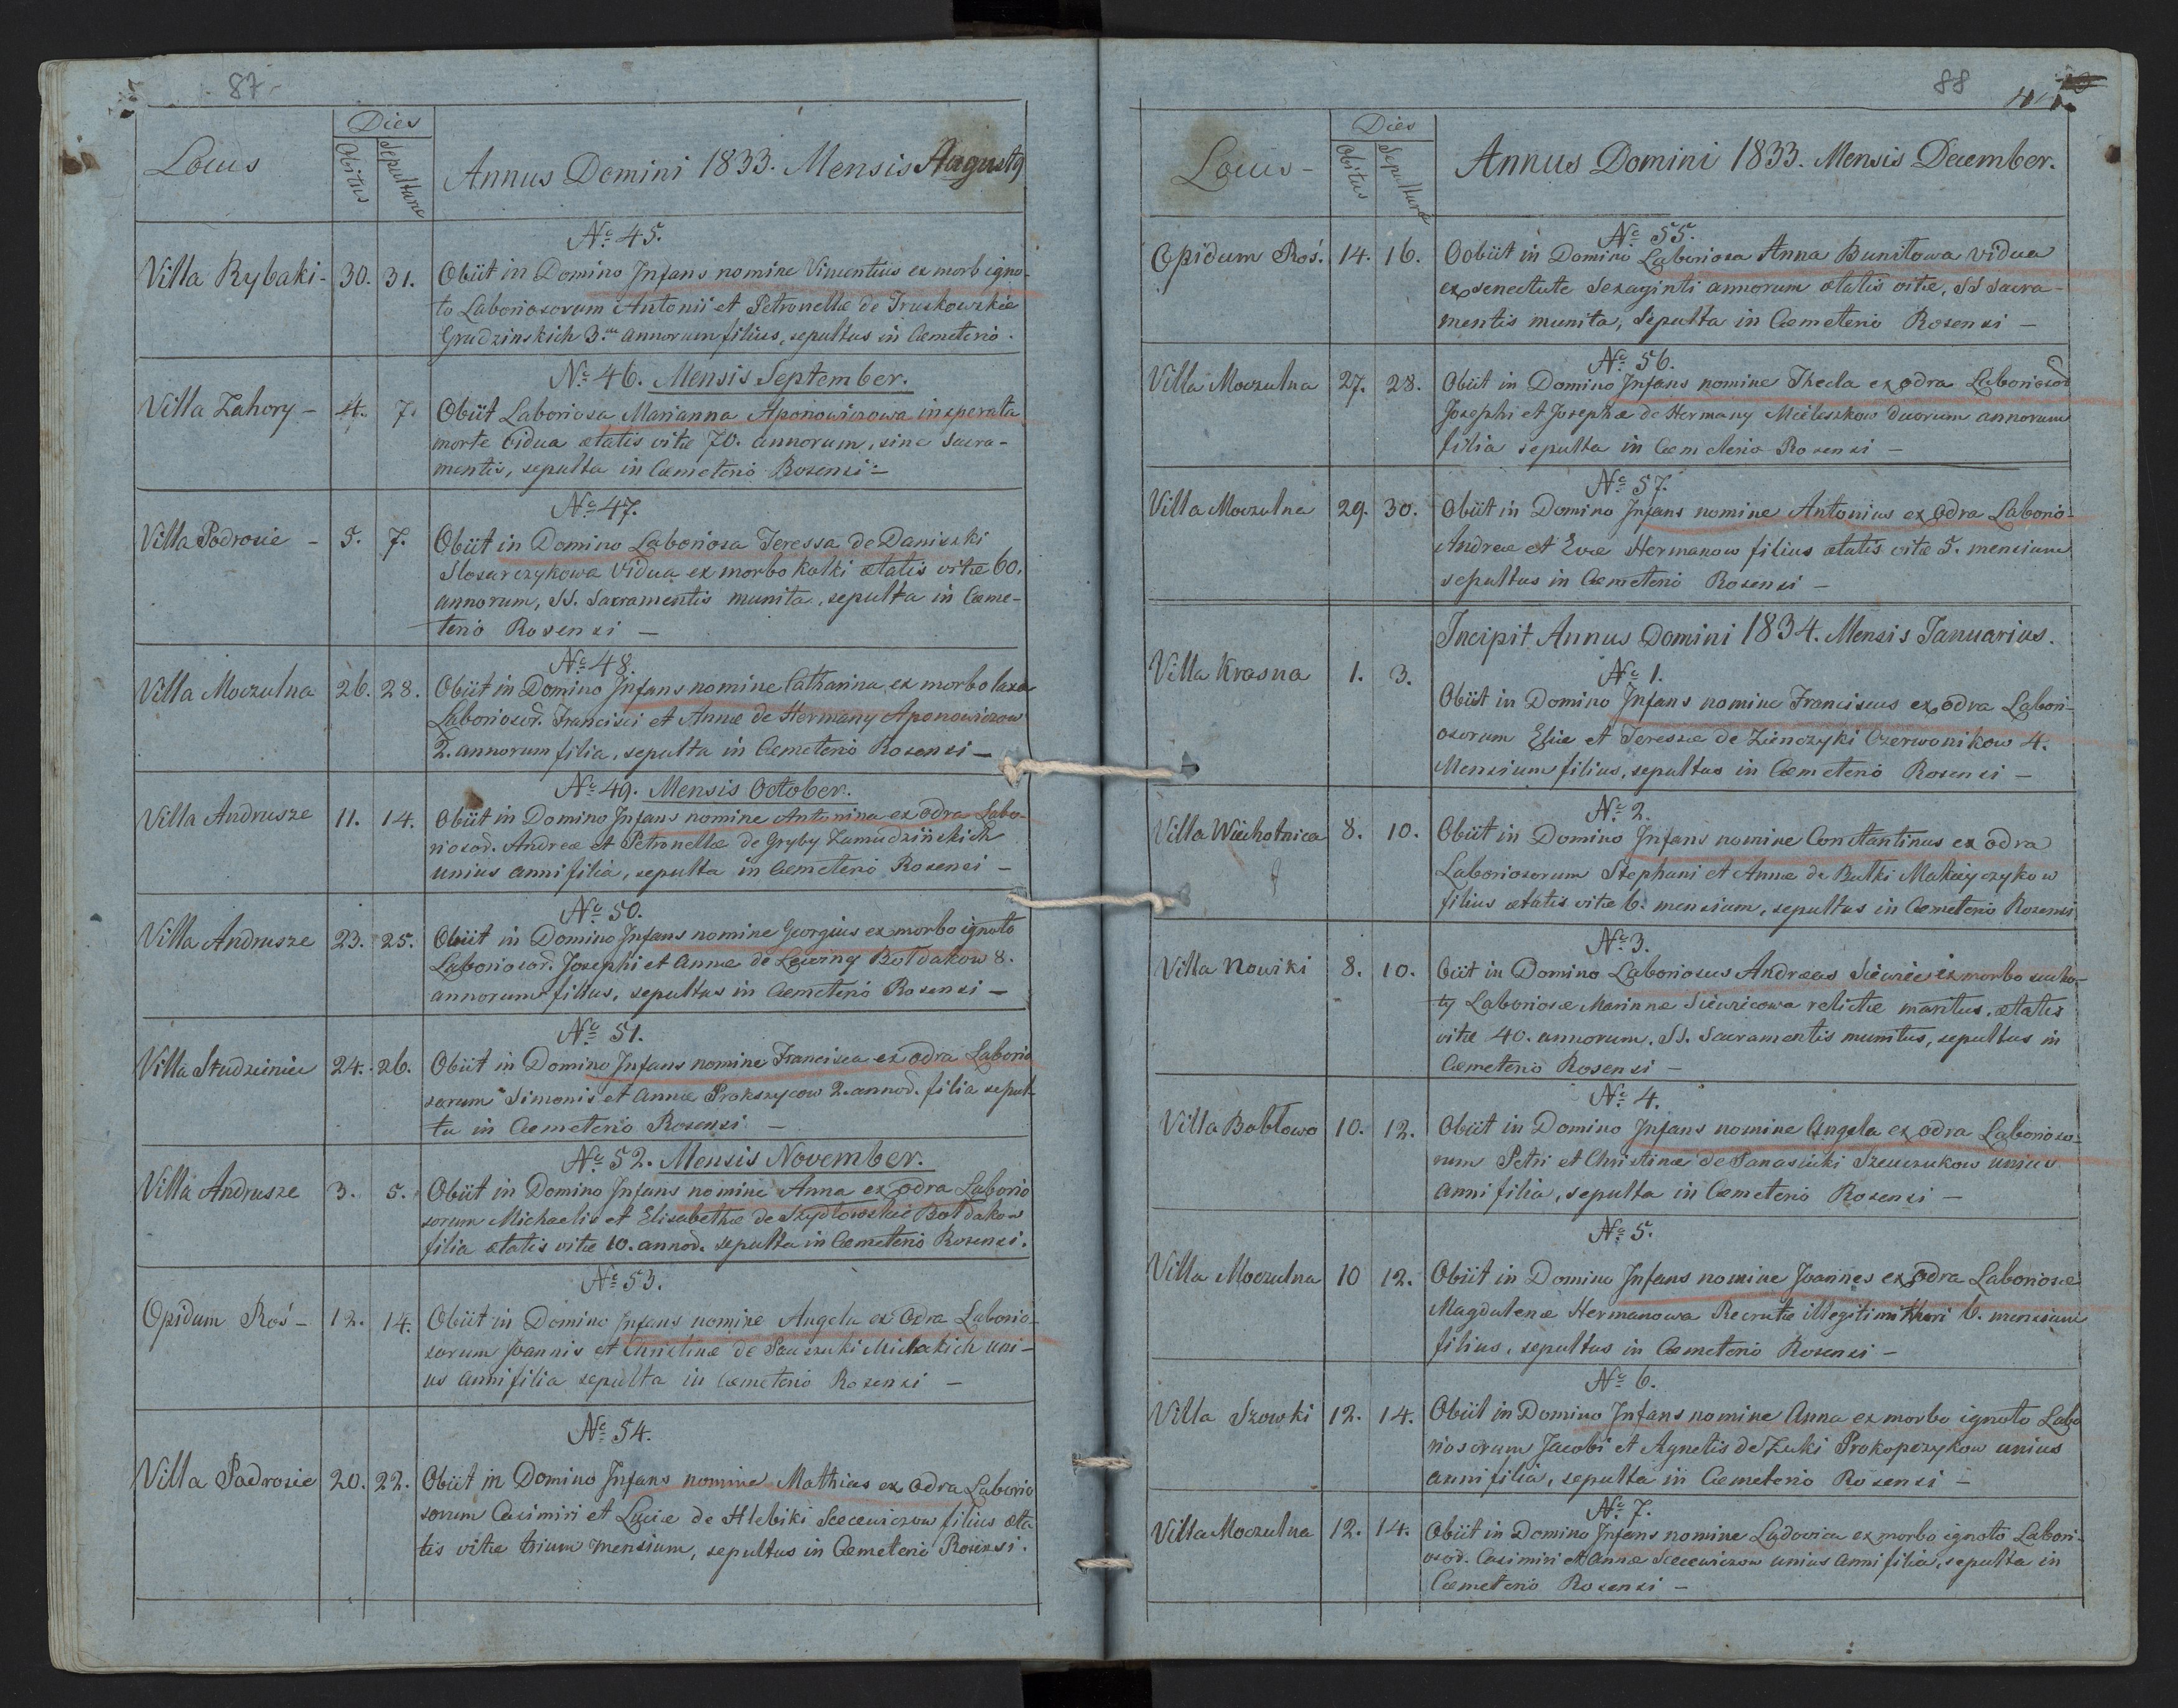 87
Locus
Dies
Obitus
Sepulturæ
Annus Domini 1833. Mensis August9
Villa Rybaki - 30. 31.
Nº 45.
Obiit in Domino Infans nomine Vincentius ex morb igno-
to Laboriosorum Antonii et Petronellæ de Truskowskie
Grudzinskich 3um annorum filius, sepultus in Cæmeterio.
Nº 46. Mensis September.
Villa Zahory - 4. 7.
Obiit Laboriosa Marianna Aponowiczowa insperata
morte Vidua ætatis vitæ 70. annorum, sine Sacra-
mentis, sepulta in Cæmeterio Rosensi -
Nº 47.
Villa Podrosie - 5. 7.
Obiit in Domino Laboriosa Teressa de Daniszki
Slosarczykowa Vidua ex morbo Kolki ætatis vitæ 60.
annorum, SS. Sacramentis munita, sepulta in Cæme-
terio Rosensi -
Nº 48.
Villa Moczulna 26. 28.
Obiit in Domino Infans nomine Catharina ex morbo laxa
Laboriosor. Francisci et Annæ de Hermany Aponowiczow
2. annorum filia, sepulta in Cæmeterio Rosensi -
Nº 49. Mensis October.
Villa Andrusze 11. 14.
Obiit in Domino Infans nomine Antonina ex odra Labo-
riosor. Andreæ et Petronellæ de Gryby Zamudzińskich
unius anni filia, sepulta in Cæmeterio Rosensi -
Nº 50.
Villa Andrusze 23. 25.
Obiit in Domino Infans nomine Georgius ex morbo ignoto
Laboriosor. Josephi et Annæ de Lewiny Bołdakow 8.
annorum filius, sepultus in Cæmeterio Rosensi -
Nº 51.
Villa Studzieniec 24. 26.
Obiit in Domino Infans nomine Francisca ex odra Laborio
sorum Simonis et Annæ Prokszycow 2. annor. filia sepul-
ta in Cæmeterio Rosensi -
Nº 52. Mensis November.
Villa Andrusze 3. 5.
Obiit in Domino Infans nomine Anna ex odra Laborio
sorum Michaelis et Elisabethæ de Szydłowskie Bołdakow
filia ætatis vitæ 10. annor. sepulta in Cæmeterio Rosensi.
Nº 53.
Opidum Roś - 12. 14.
Obiit in Domino Infans nomine Angela ex Odra Laborio-
sorum Joannis et Christinæ de Michakich uni-
us anni filia sepulta in Cæmeterio Rosensi -
Nº 54.
Villa Podrosie 20. 22.
Obiit in Domino Infans nomine Mathias ex Odra Laborio
sorum Casimiri et Luciæ de Hlebiki Scecewiczow filius æta
tis vitæ trium mensium, sepultus in Cæmeterio Rosensi.
88
Locus -
Dies
Obitus
Sepulturæ
Annus Domini 1833. Mensis December.
Nº 55.
Opidum Roś. 14. 16.
Oobiit in Domino Laboriosa Anna Bunitowa Vidua
ex senectute Sexaginti annorum ætatis vitæ, SS Sacra-
mentis munita, Sepulta in Cæmeterio Rosensi -
Nº 56.
Villa Moczulna 27. 28.
Obiit in Domino Infans nomine Thecla ex odra Laboriosor
Josephi et Josephæ de Hermany Mieleszkow duorum annorum
filia sepulta in Cæmeterio Rosensi -
Nº 57.
Villa Moczulna 29. 30.
Obiit in Domino Infans nomine Antonius ex odra Laborio-
Andreæ et Evæ Hermanow filius ætatis vitæ 5. mensium
sepultus in Cæmeterio Rosensi -
Incipit Annus Domini 1834. Mensis Januarius.
Nº 1.
Villa Krasna 1. 3.
Obiit in Domino Infans nomine Franciscus ex odra Labori-
osorum Eliæ et Teressæ de Zienczyki Czerwonikow 4.
Mensium filius, sepultus in Cæmeterio Rosensi -
Nº 2.
Villa Wiechotnica 8. 10.
Obiit in Domino Infans nomine Constantinus ex odra
Laboriosorum Stephani et Annæ de Butki Makieyczykow
filius ætatis vitæ 6. mensium, sepultus in Cæmeterio Rosensi
Nº 3.
Villa Nowiki 8. 10.
Obiit in Domino Laboriosus Andreas Siewiec ex morbo sucho-
ty Laboriosæ Marinnæ Siewicowa relictæ maritus, ætatis
vitæ 40. annorum. SS. Sacramentis munitus, sepultus in
Cæmeterio Rosensi -
Nº 4.
Villa Bobłowo 10. 12.
Obiit in Domino Infans nomine Angela ex odra Laborioso-
rum Petri et Christinæ de Panasiuki Szewczukow unius
anni filia, sepulta in Cæmeterio Rosensi -
Nº 5.
Villa Moczulna 10 12.
Obiit in Domino Infans nomine Joannes ex odra Laboriosæ
Magdalenæ Hermanowa Recrutæ illegitimi thori 6. mensium
filius, sepultus in Cæmeterio Rosensi -
Nº 6.
Villa Szowki 12. 14.
Obiit in Domino Infans nomine Anna ex morbo ignoto Labo
riosorum Jacobi et Agnetis de Zuki Prokopczykow unius
anni filia, sepulta in Cæmeterio Rosensi -
Nº 7.
Villa Moczulna 12. 14.
Obiit in Domino Infans nomine Ludovica ex morbo ignoto Labori-
osor. Casimiri et Annæ Scecewiczow unius anni filia, sepulta in
Cæmeterio Rosensi -